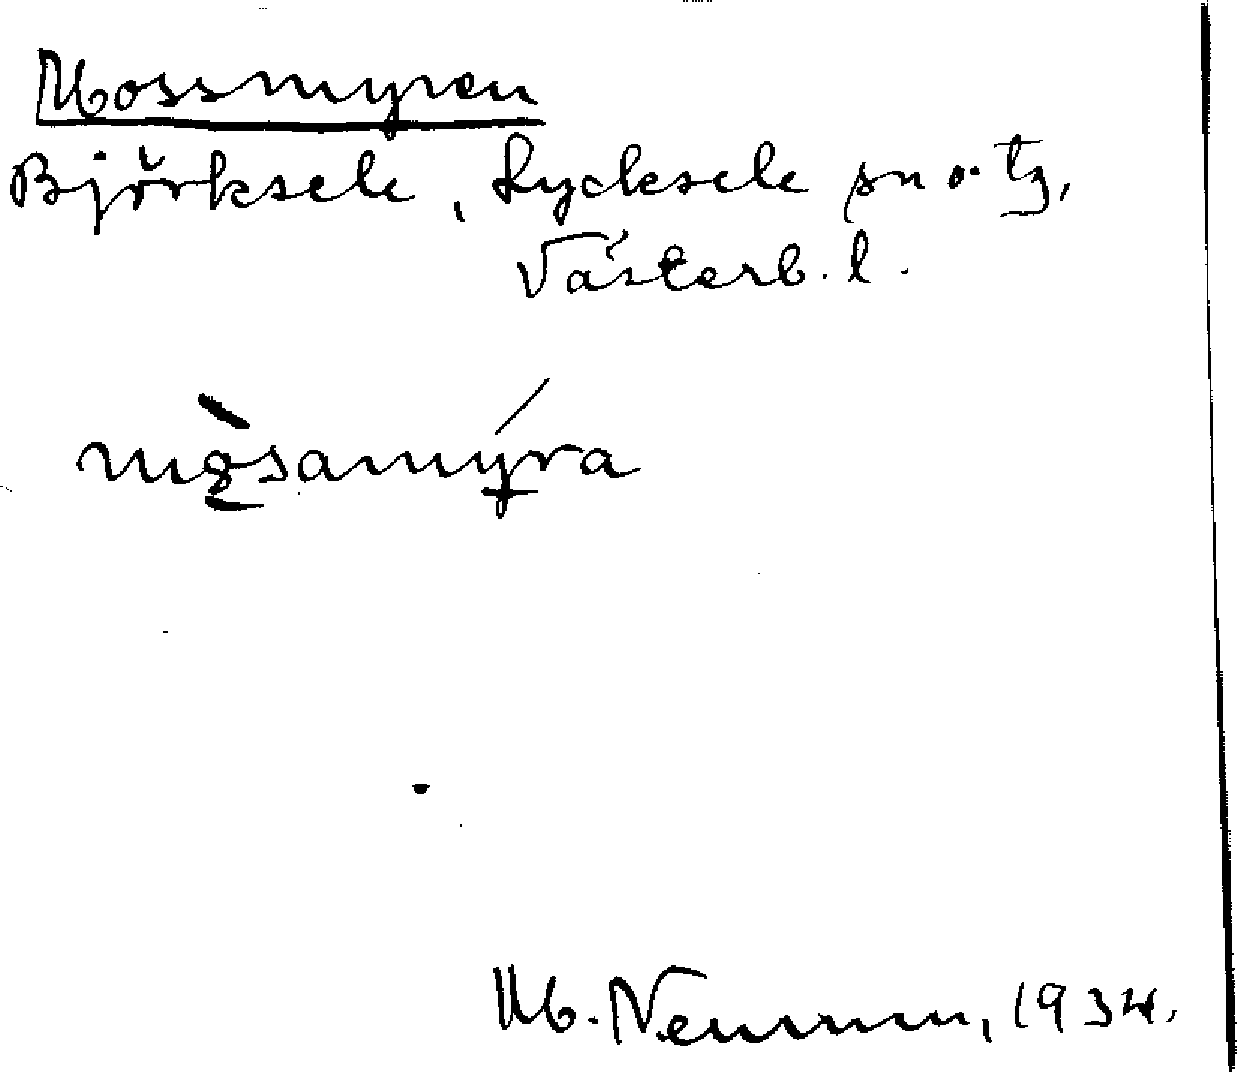 Mossmyren
Björksele, Lycksele sn o. tg,
Västerb. l.
mosamyra
M. Neuman, 1934.